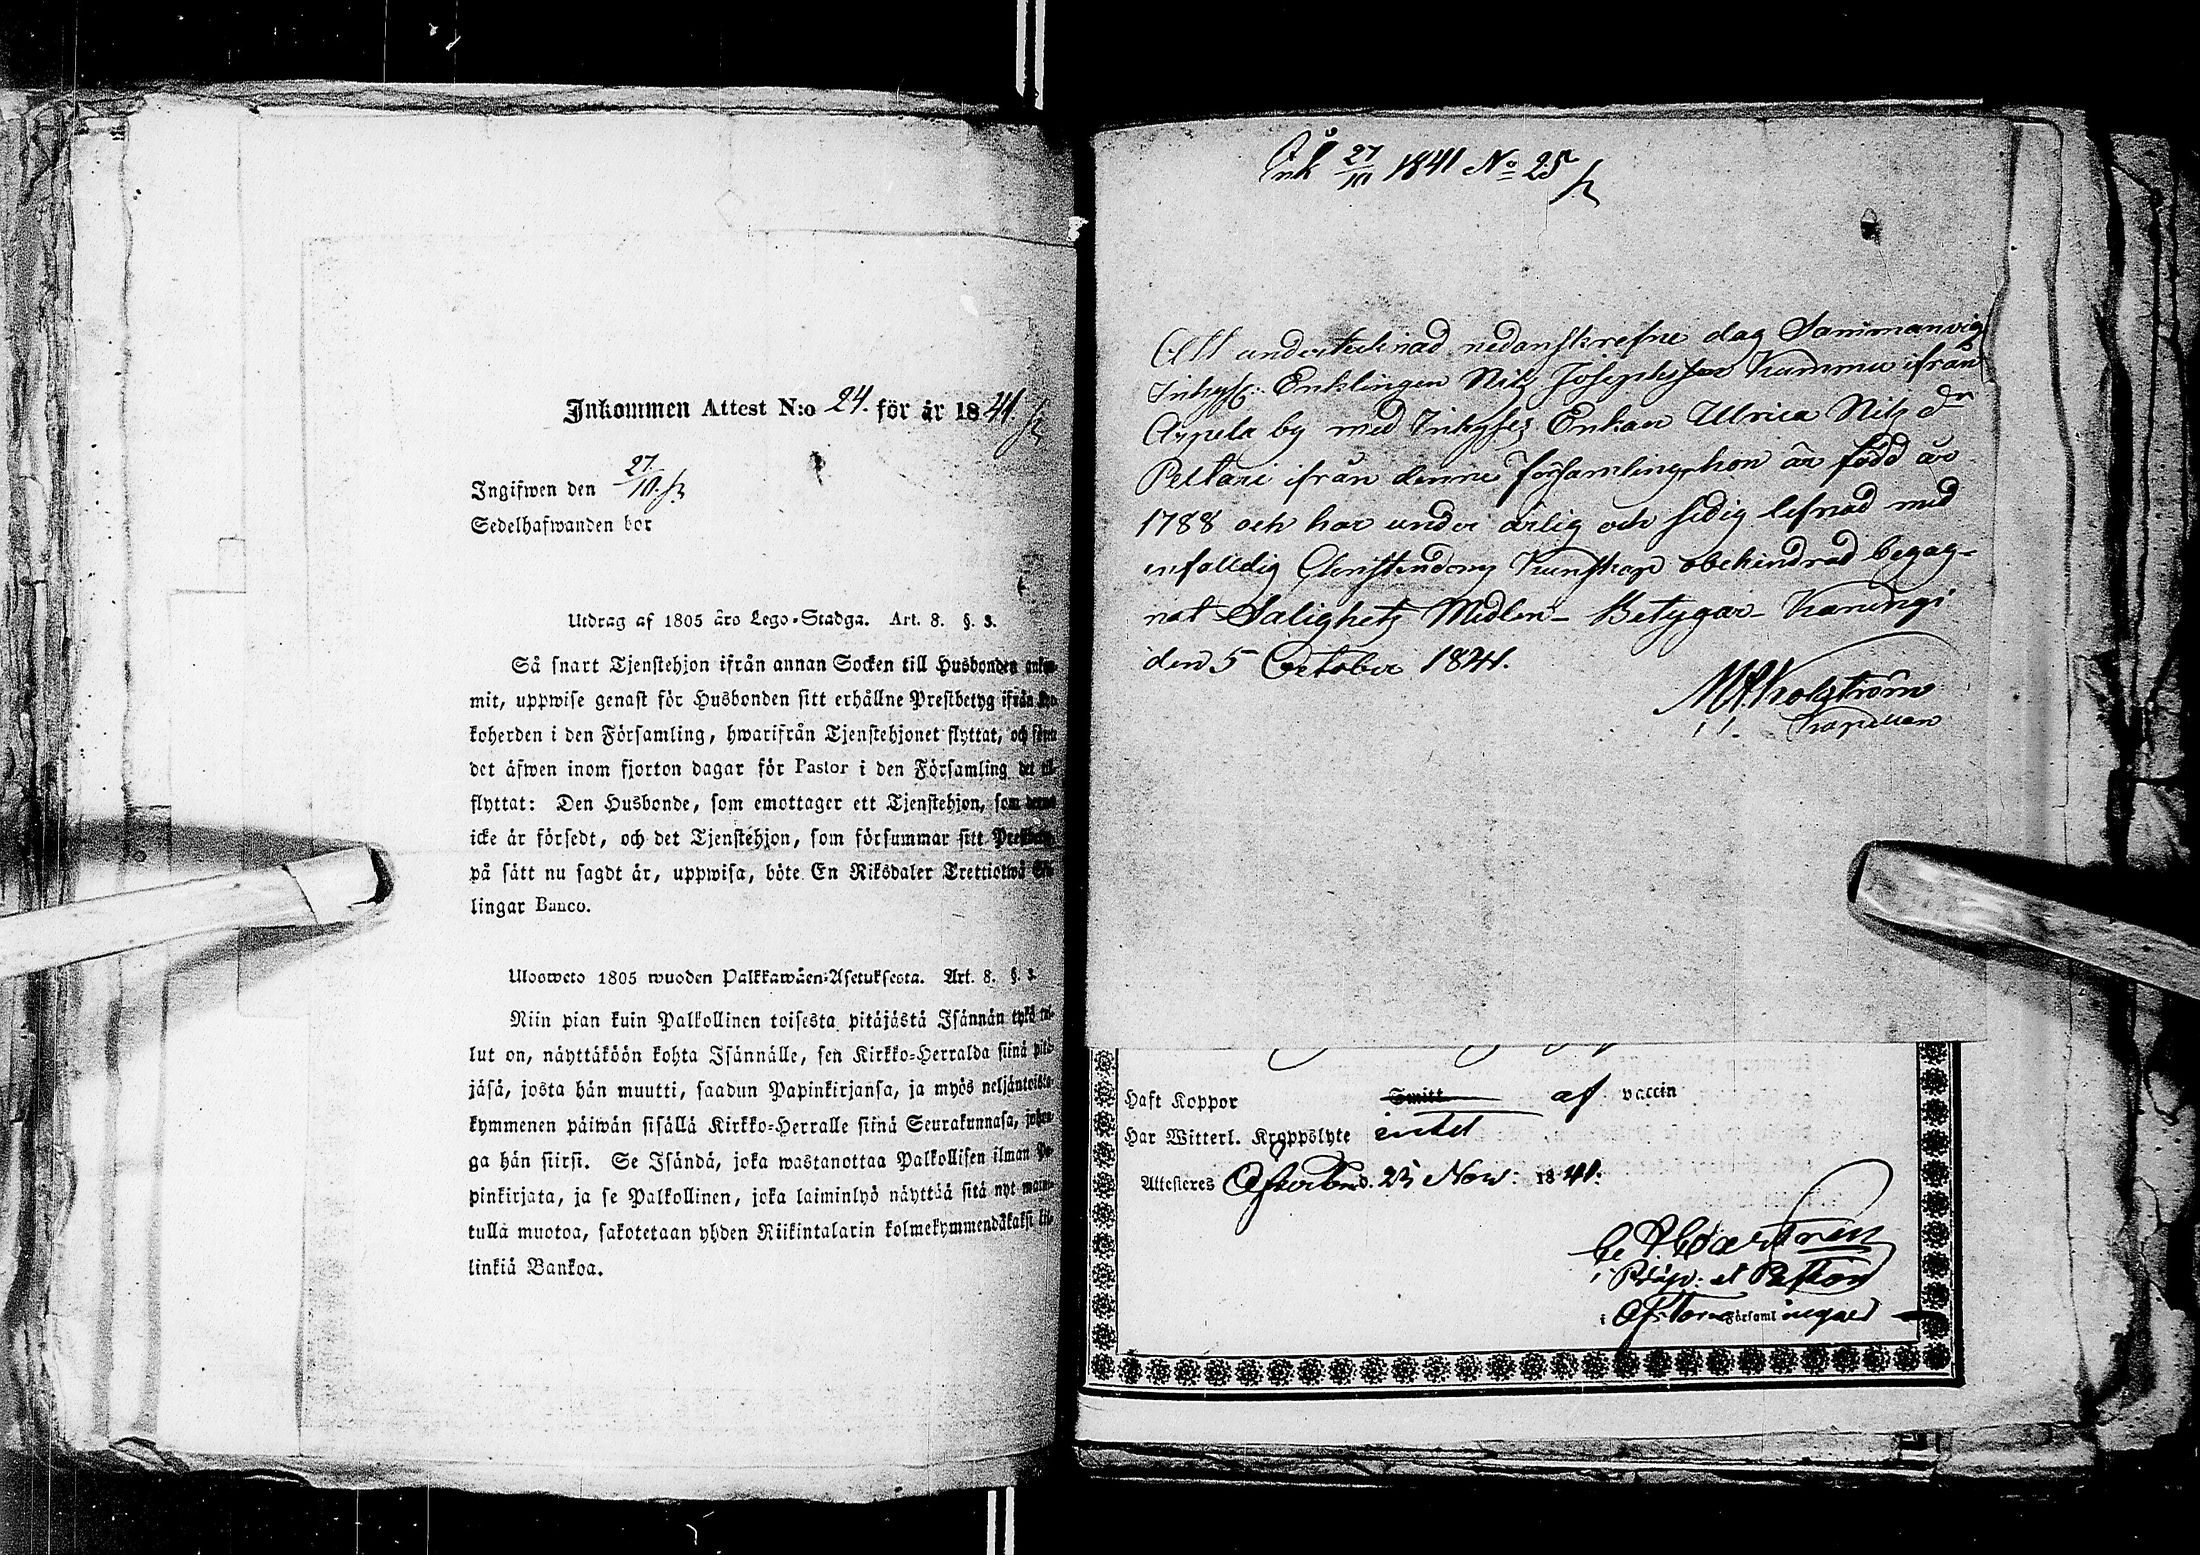 Inkommen Attest N:o 24. för år 1841.
Ingifwen den 27/10.
Sedelhafwanden bor
Utdrag af 1805 års Lego-Stadga. Art. 8. §. 3.
Så snart Tjenstehjon ifrån annan Socken till Husbonden
mit, uppwise genast för Husbonden sitt erhållne Prestbetyg ifrån
koherden i den Församling, hwarifrån Tjenstehjonet flyttat, och
det äfwen inom fjorton dagar för Pastor i den Församling det
flyttat: Den Husbonde, som emottager ett Tjenstehjon, som
icke är försedt, och det Tjenstehjon, som försummar sitt
på sätt nu sagdt är, uppwisa, böte En Riksdaler Trettiotwå
lingar Banco.
Uloosweto 1805 wuoden Palkkawäen-Asetuksesta. Art. 8. §. 3.
Niin pian kuin Palkollinen toisesta pitäjästä Isännän tykö tul-
lut on, näyttäköön kohta Isännälle, sen Kirkko-Herralda siinä pitä-
jäsä, josta hän muutti, saadun Papinkirjansa, ja myös neljäntoista-
kymmenen päiwän sisällä Kirkko-Herralle siinä Seurakunnasa, johon-
ga hän siirsi. Se Isändä, joka wastanottaa Palkollisen ilman Pa-
pinkirjata, ja se Palkollinen, joka laiminlyö näyttää sitä nyt maini-
tulla muotoa, sakotetaan yhden Riikintalarin kolmekymmendäkaksi kil-
linkiä Bankoa.
Ink 27/10 1841 No 25
Att undertecknad nedanskrefne dag Sammanvigt
Inhyss: Enklingen Nils Josephsson Kummu ifrån
Arpela by med Inhyses Enkan Ulrica Nils dr
Peltari ifrån denne församling, hon är född år
1788 och har under ärlig och sedig lefnad med
enfalldig Christendoms Kunskap obehindrad begag-
nat Salighets Medlen - Betygar - Karungi
den 5 October 1841.
M. Kolström
Kapellan
Haft Koppor Smitt af vaccin
Har Witterl. Kroppslyte intet
Attesteres 23 Nov: 1841.
C. Castrén
Pastor
i Församlingar